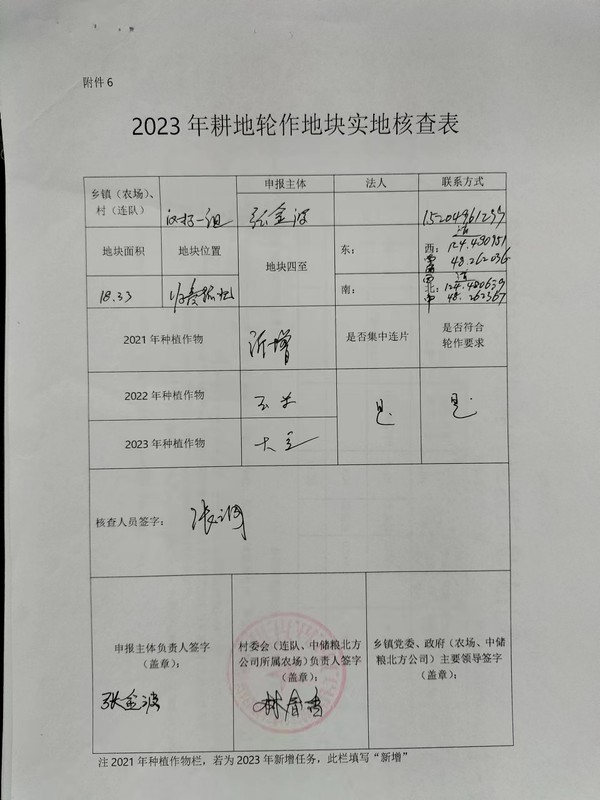 附件 6
2023 年耕地轮作地块实地核查表
乡镇（农场）、
村（连队）
申报主体
法人
联系方式
张金波
地块面积
地块位置
地块四至
东：
西：
18.33
南：
北：
2021 年种植作物
新增
是否集中连片
是否符合
轮作要求
2022 年种植作物
玉米
是
是
2023 年种植作物
大豆
核查人员签字：
申报主体负责人签字
（盖章）：
张金波
村委会（连队、中储粮北方
公司所属农场）负责人签字
（盖章）：
乡镇党委、政府（农场、中储
粮北方公司）主要领导签字
（盖章）：
注 2021 年种植作物栏，若为 2023 年新增任务，此栏填写“新增”